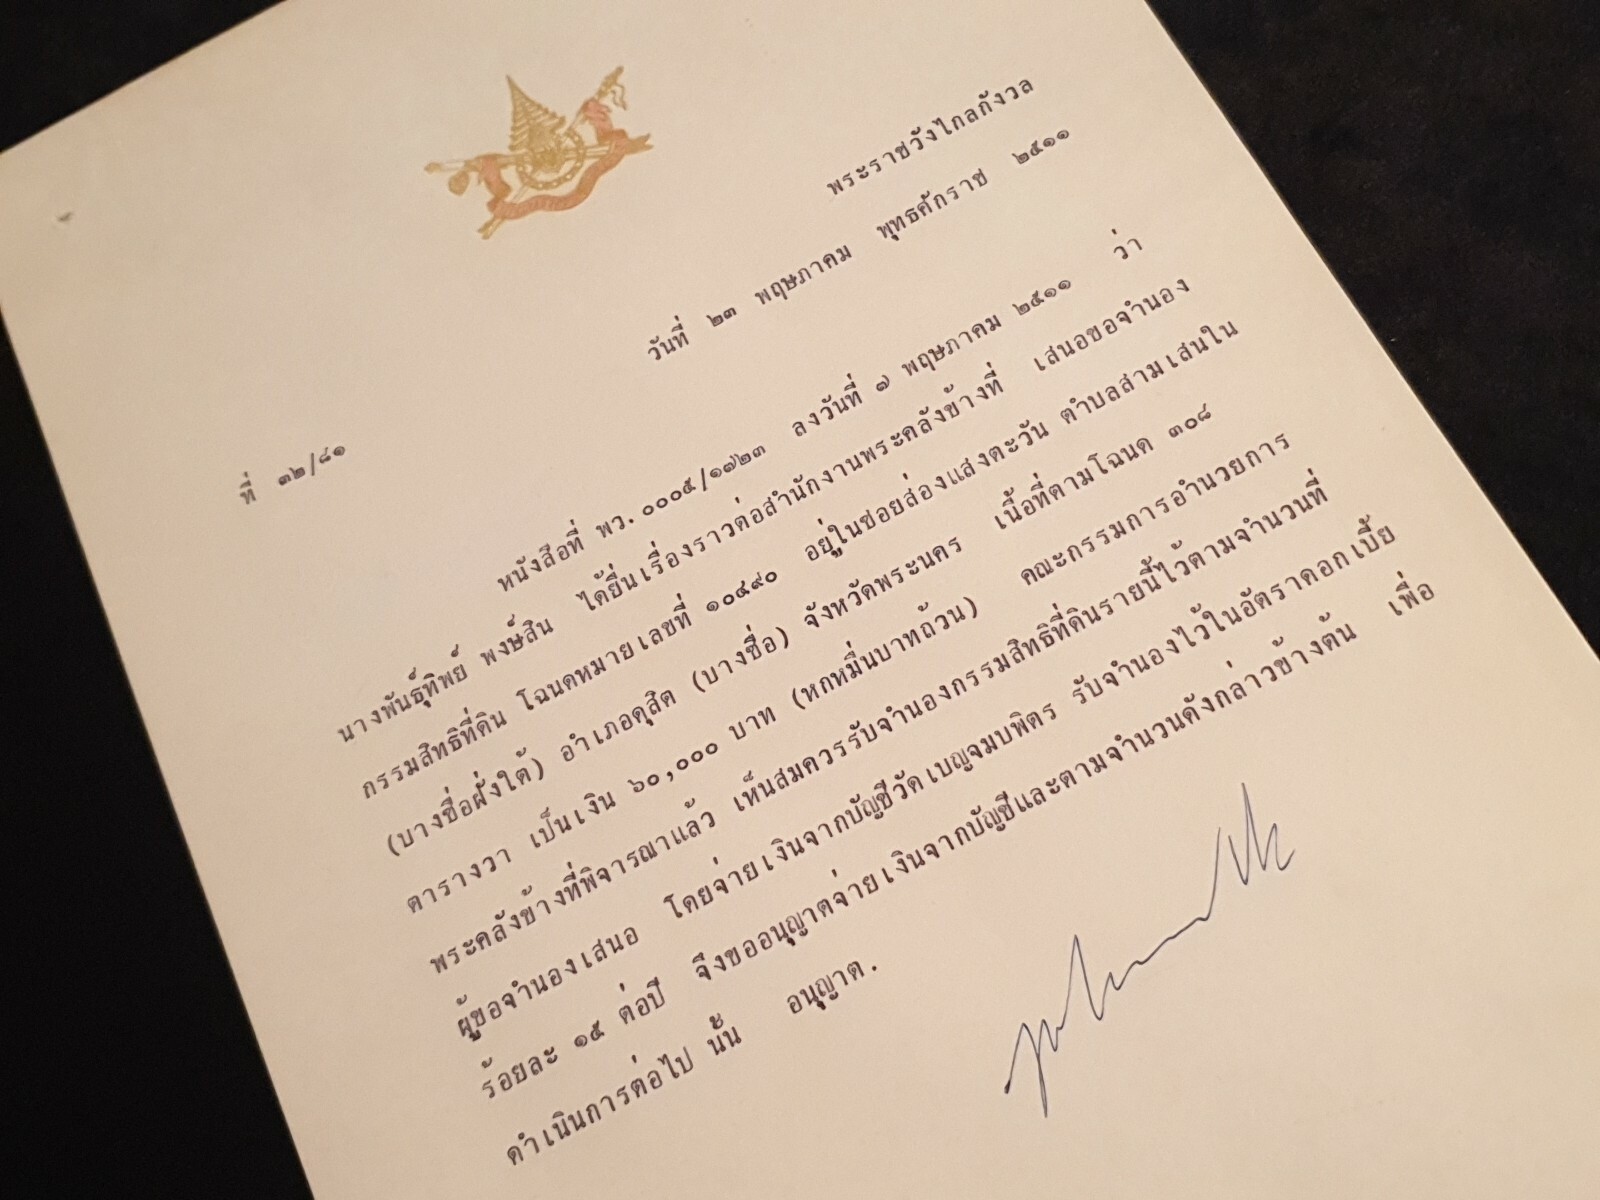 พระราชวังไกลกังวล
วันที่ ๒๓ พฤษภาคม พุทธศักราช ๒๕๑๑
ที่ ๓๒/๘๑
หนังสือที่ พว.๐๐๐๕/๑๗๒๓ ลงวันที่ ๗ พฤษภาคม ๒๕๑๑ ว่า
นางพันธุ์ทิพย์ พงษ์สิน ได้ยื่นเรื่องราวต่อสำนักงานพระคลังข้างที่ เสนอขอจำนอง
กรรมสิทธิที่ดิน โฉนดหมายเลขที่ ๑๐๔๙๐ อยู่ในซอยส่องแสงตะวัน ตำบลสามเสนใน
(บางซื่อฝั่งใต้) อำเภอดุสิต (บางซื่อ) จังหวัดพระนคร เนื้อที่ตามโฉนด ๓๐๘
ตารางวา เป็นเงิน ๖๐,๐๐๐ บาท (หกหมื่นบาทถ้วน) คณะกรรมการอำนวยการ
พระคลังข้างที่พิจารณาแล้ว เห็นสมควรรับจำนองกรรมสิทธิที่ดินรายนี้ไว้ตามจำนวนที่
ผู้ขอจำนองเสนอ โดยจ่ายเงินจากบัญชีวัดเบญจมบพิตร รับจำนองไว้ในอัตราดอกเบี้ย
ร้อยละ ๑๕ ต่อปี จึงขออนุญาตจ่ายเงินจากบัญชีและตามจำนวนดังกล่าวข้างต้น เพื่อ
ดำเนินการต่อไป นั้น อนุญาต.